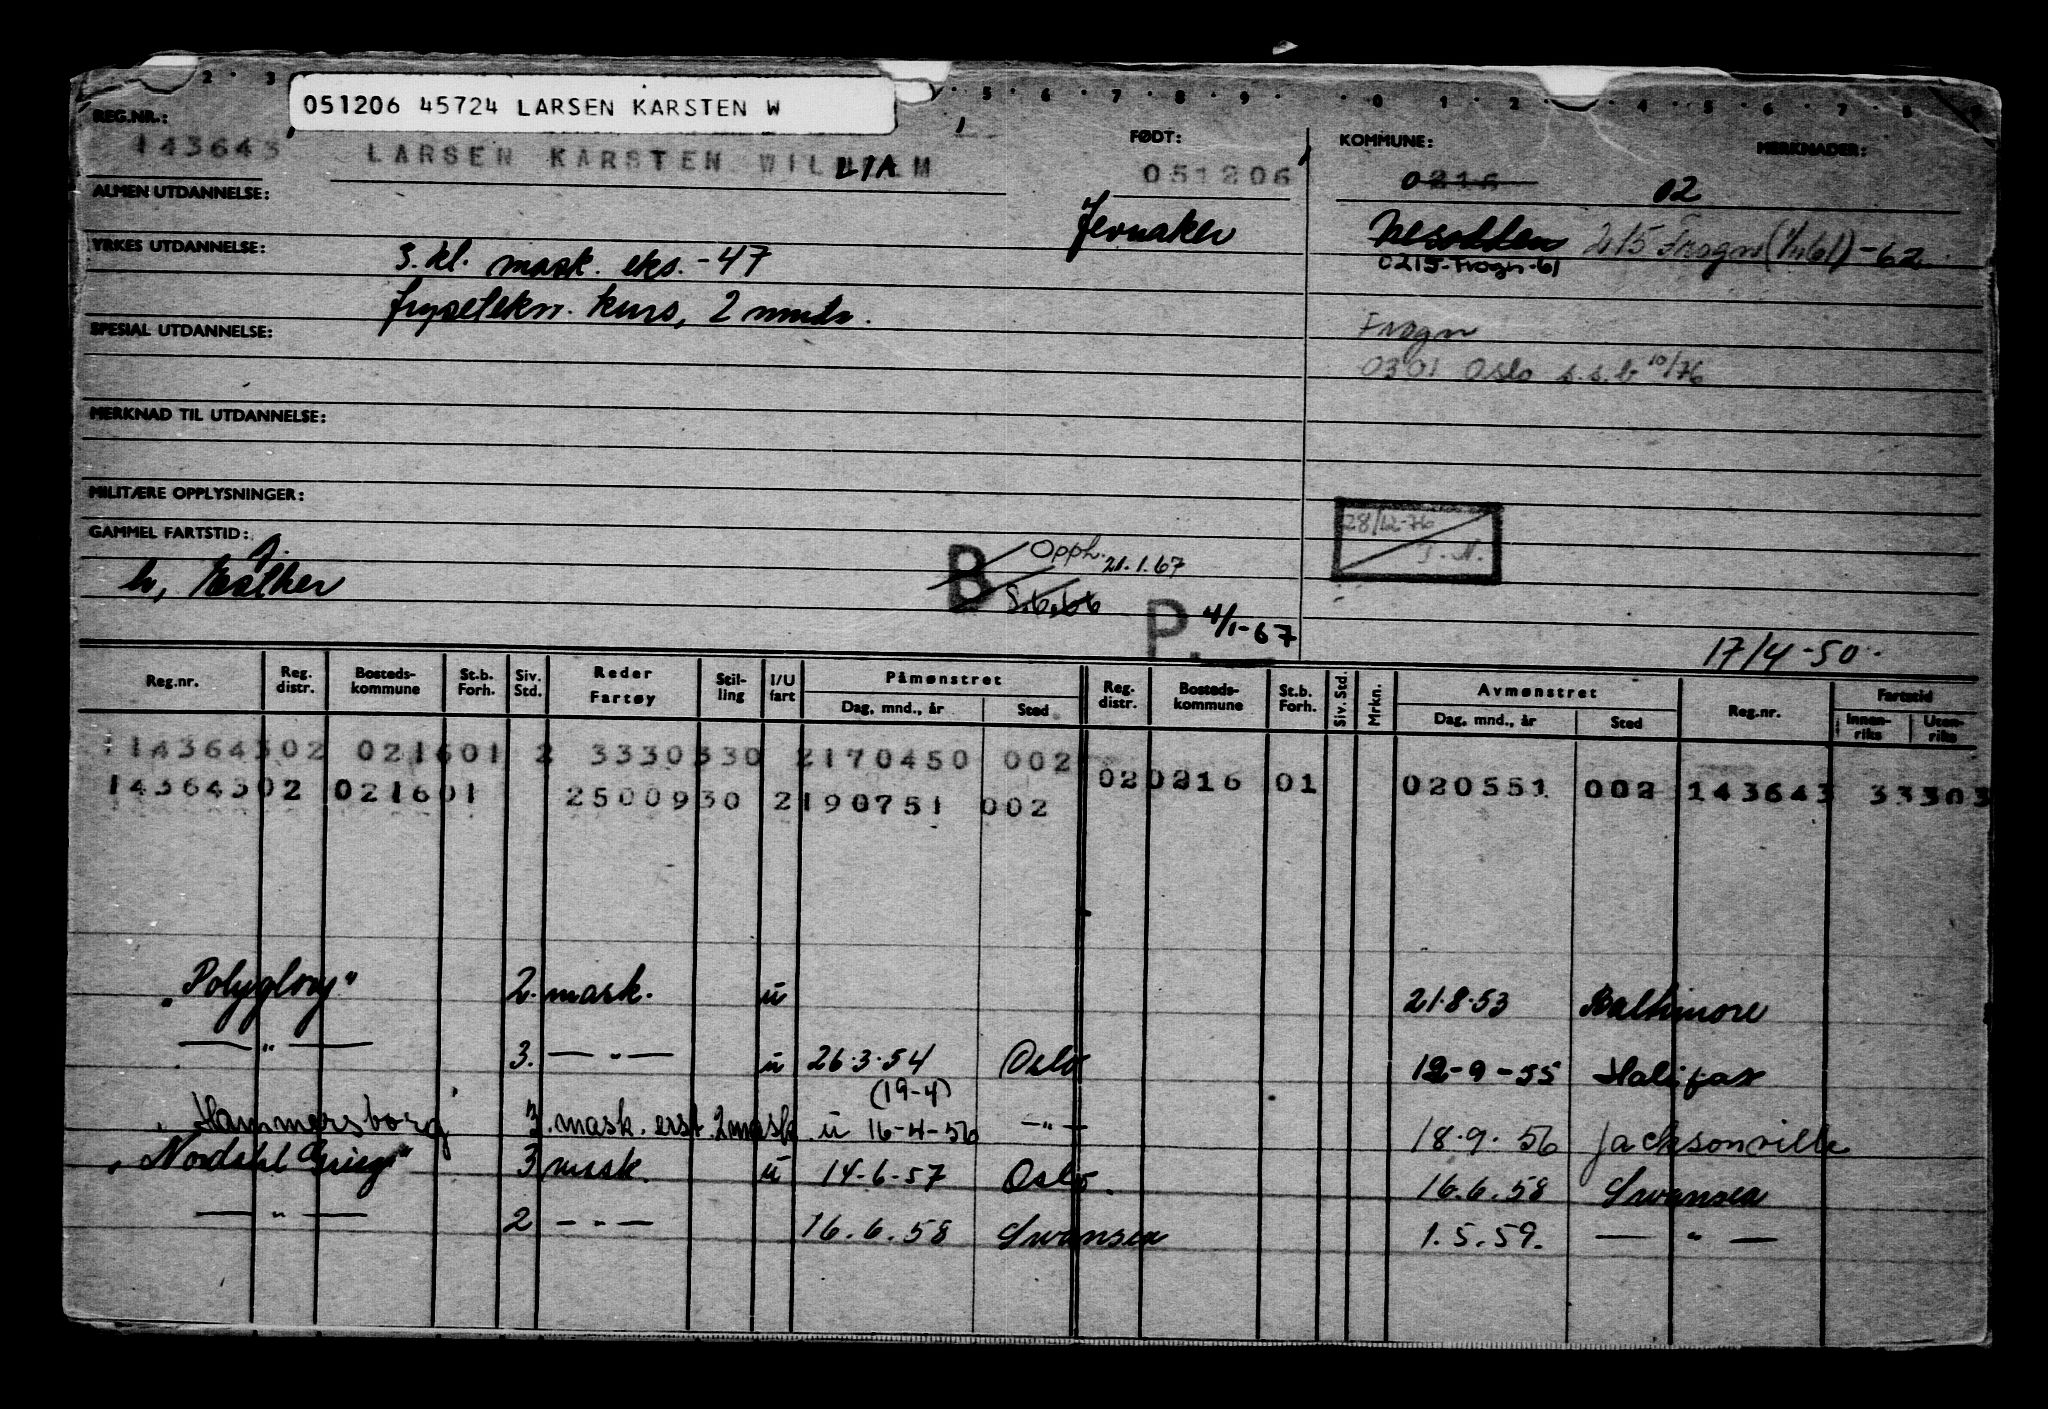 051206 45724 LARSEN KARSTEN W
REG.NR.:
143643
LARSEN KARSTEN WILHELM
FØDT:
051206
KOMMUNE:
MERKNADER:
0216
02
ALMEN UTDANNELSE:
Jevnaker
Nesodden 215 Frogn (1/1-61) -62
0215-Frogn-61
YRKES UTDANNELSE:
3. kl. mask. eks. -47
frysetekn. kurs, 2 mndr.
Frogn
SPESIAL UTDANNELSE:
0301 Oslo s.s.b 10/76
MERKNAD TIL UTDANNELSE:
MILITÆRE OPPLYSNINGER:
28/12-76
GAMMEL FARTSTID:
h, Esther
B Opph. 21.1.67
P. 4/1-67
17/4-50
Reg.nr. Reg. distr. Bosteds-kommune St.b. Forh. Siv. Std. Reder Fartøy Stil-ling I/U fart Påmønstret Dag, mnd., år Sted Reg. distr. Bosteds-kommune St.b. Forh. Siv. Std. Mrkn. Avmønstret Dag, mnd., år Sted Reg.nr. Fartstid Innen-riks Uten-riks
14364302 021601 2 3330330 2170450 002
020216 01 020551 002 143643 33303
14364302 021601 2500930 2190751 002
"Polyglory" 2. mask. u 21.8.53 Baltimore
— " — 3. — " — u 26.3.54 Oslo 12-9-55 Halifax
(19-4)
"Hammersborg" 3. mask. erst. 2 mask. u 16-4-56 — " — 18.9.56 Jacksonville
"Nordahl Grieg" 3 mask. u 14-6-57 Oslo. 16.6.58 Swansea
— " — 2 — " — 16.6.58 Swansea 1.5.59. — " —